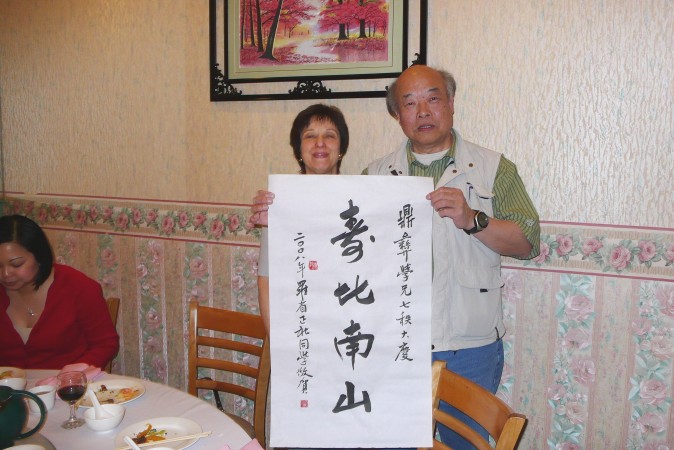 鼎彝學兄七秩大慶
壽比南山
二〇〇八年羅省正社同學敬賀